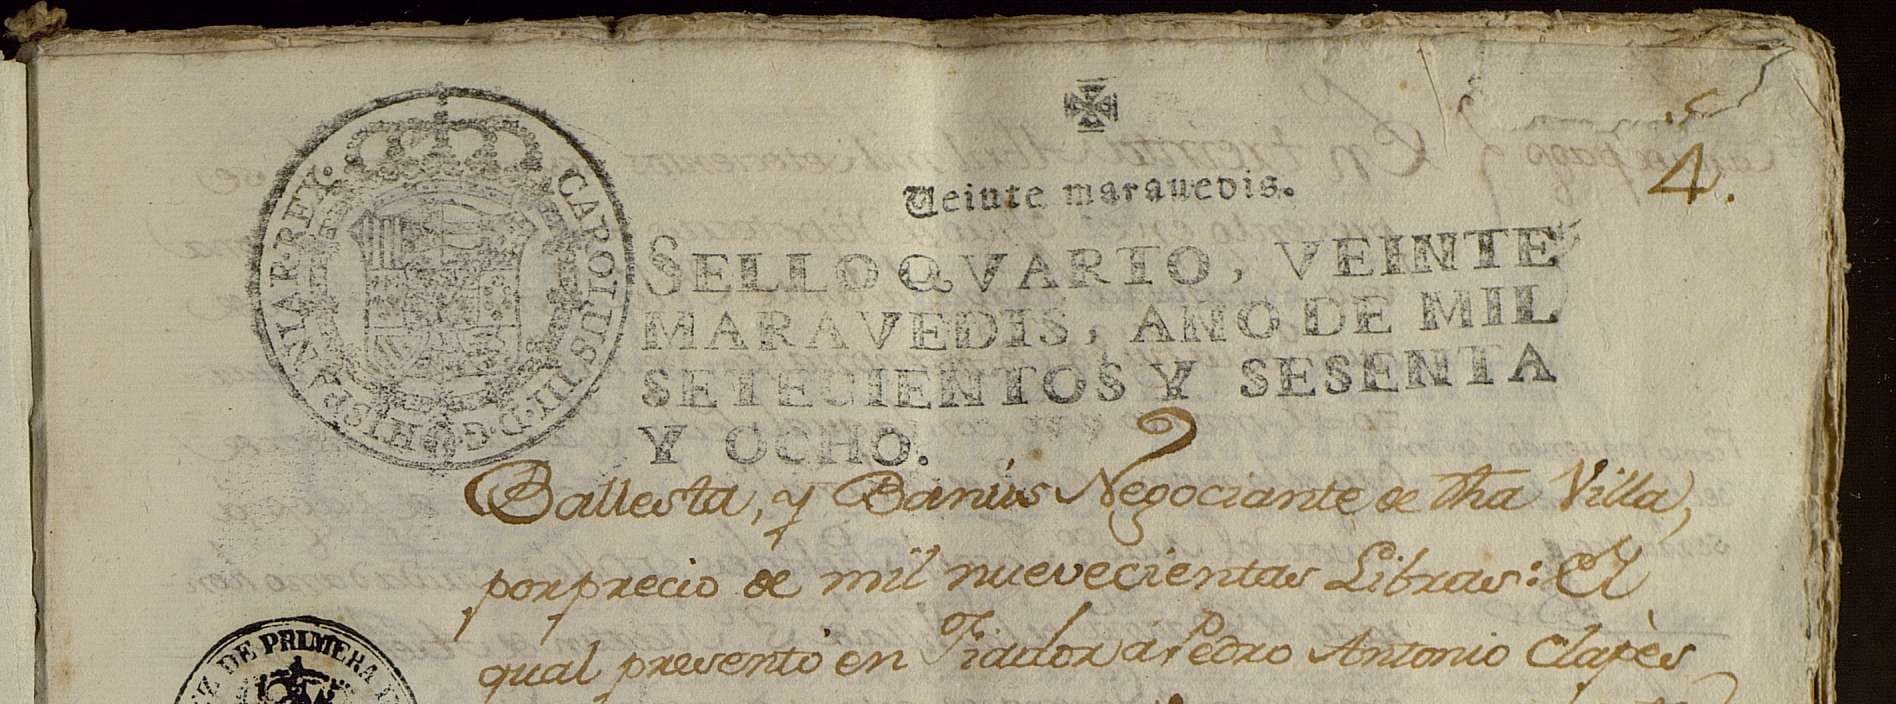 CAROLUS III. D. G. HISPANIAR. REX.
4.
Veinte marauedis.
SELLO QVARTO, VEINTE
MARAVEDIS, AÑO DE MIL
SETECIENTOS Y SESENTA
Y OCHO.
Ballesta, y Banús Negociante de dha Villa,
por precio de mil nuevecientas Libras: El
qual presentó en Fiador á Pedro Antonio Clapès
DE PRIMERA